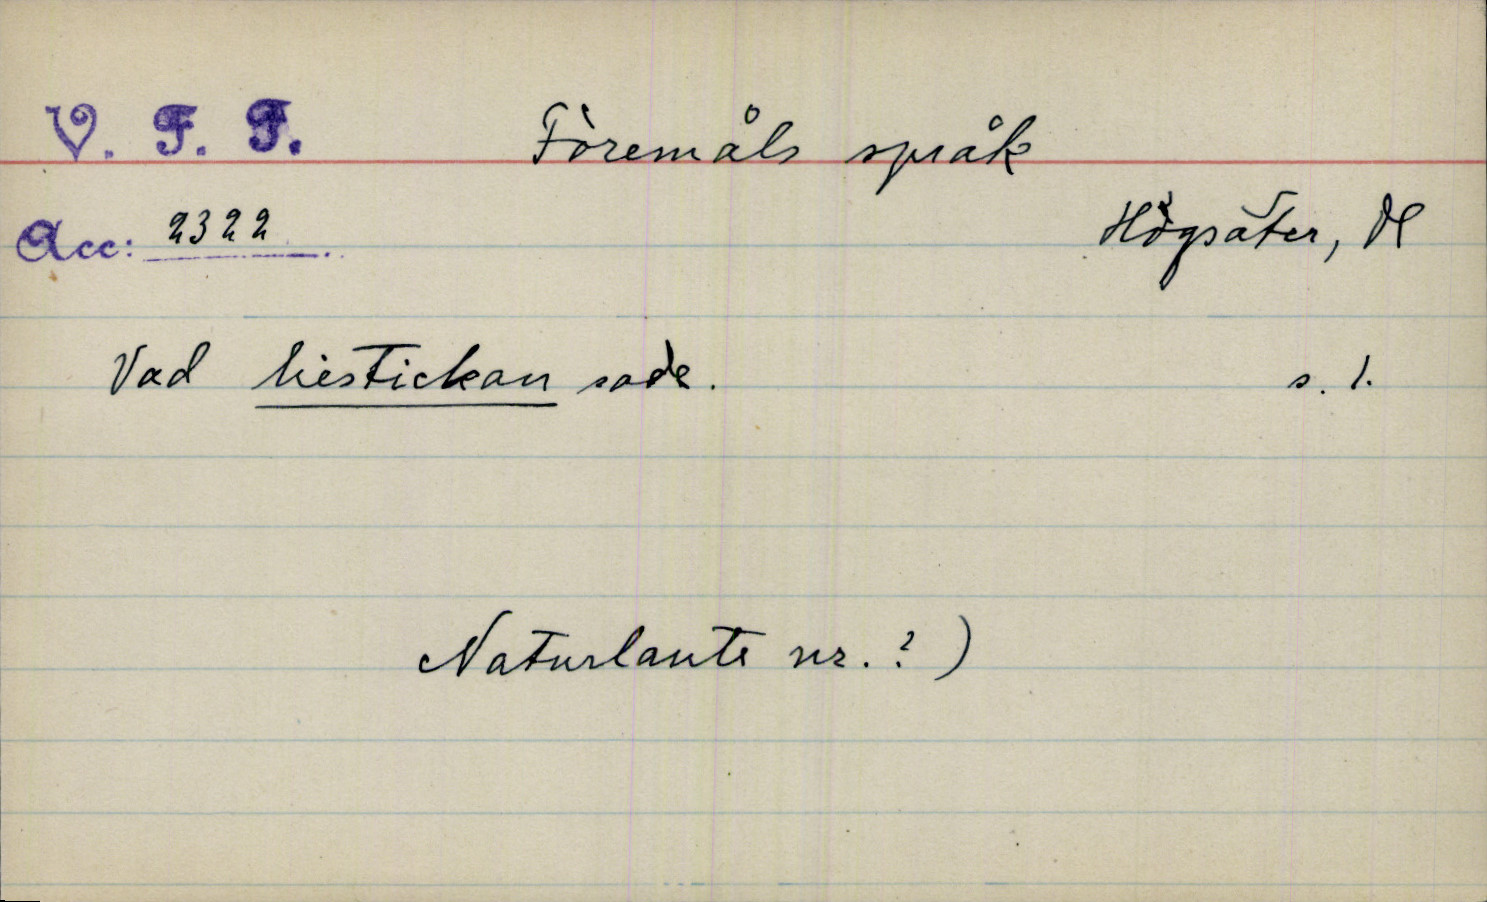 V. F. F. Föremåls språk
Acc: 2322 Högsäter, Dl
Vad liestickan sade. s. 1.
Naturlaute nr. ? )